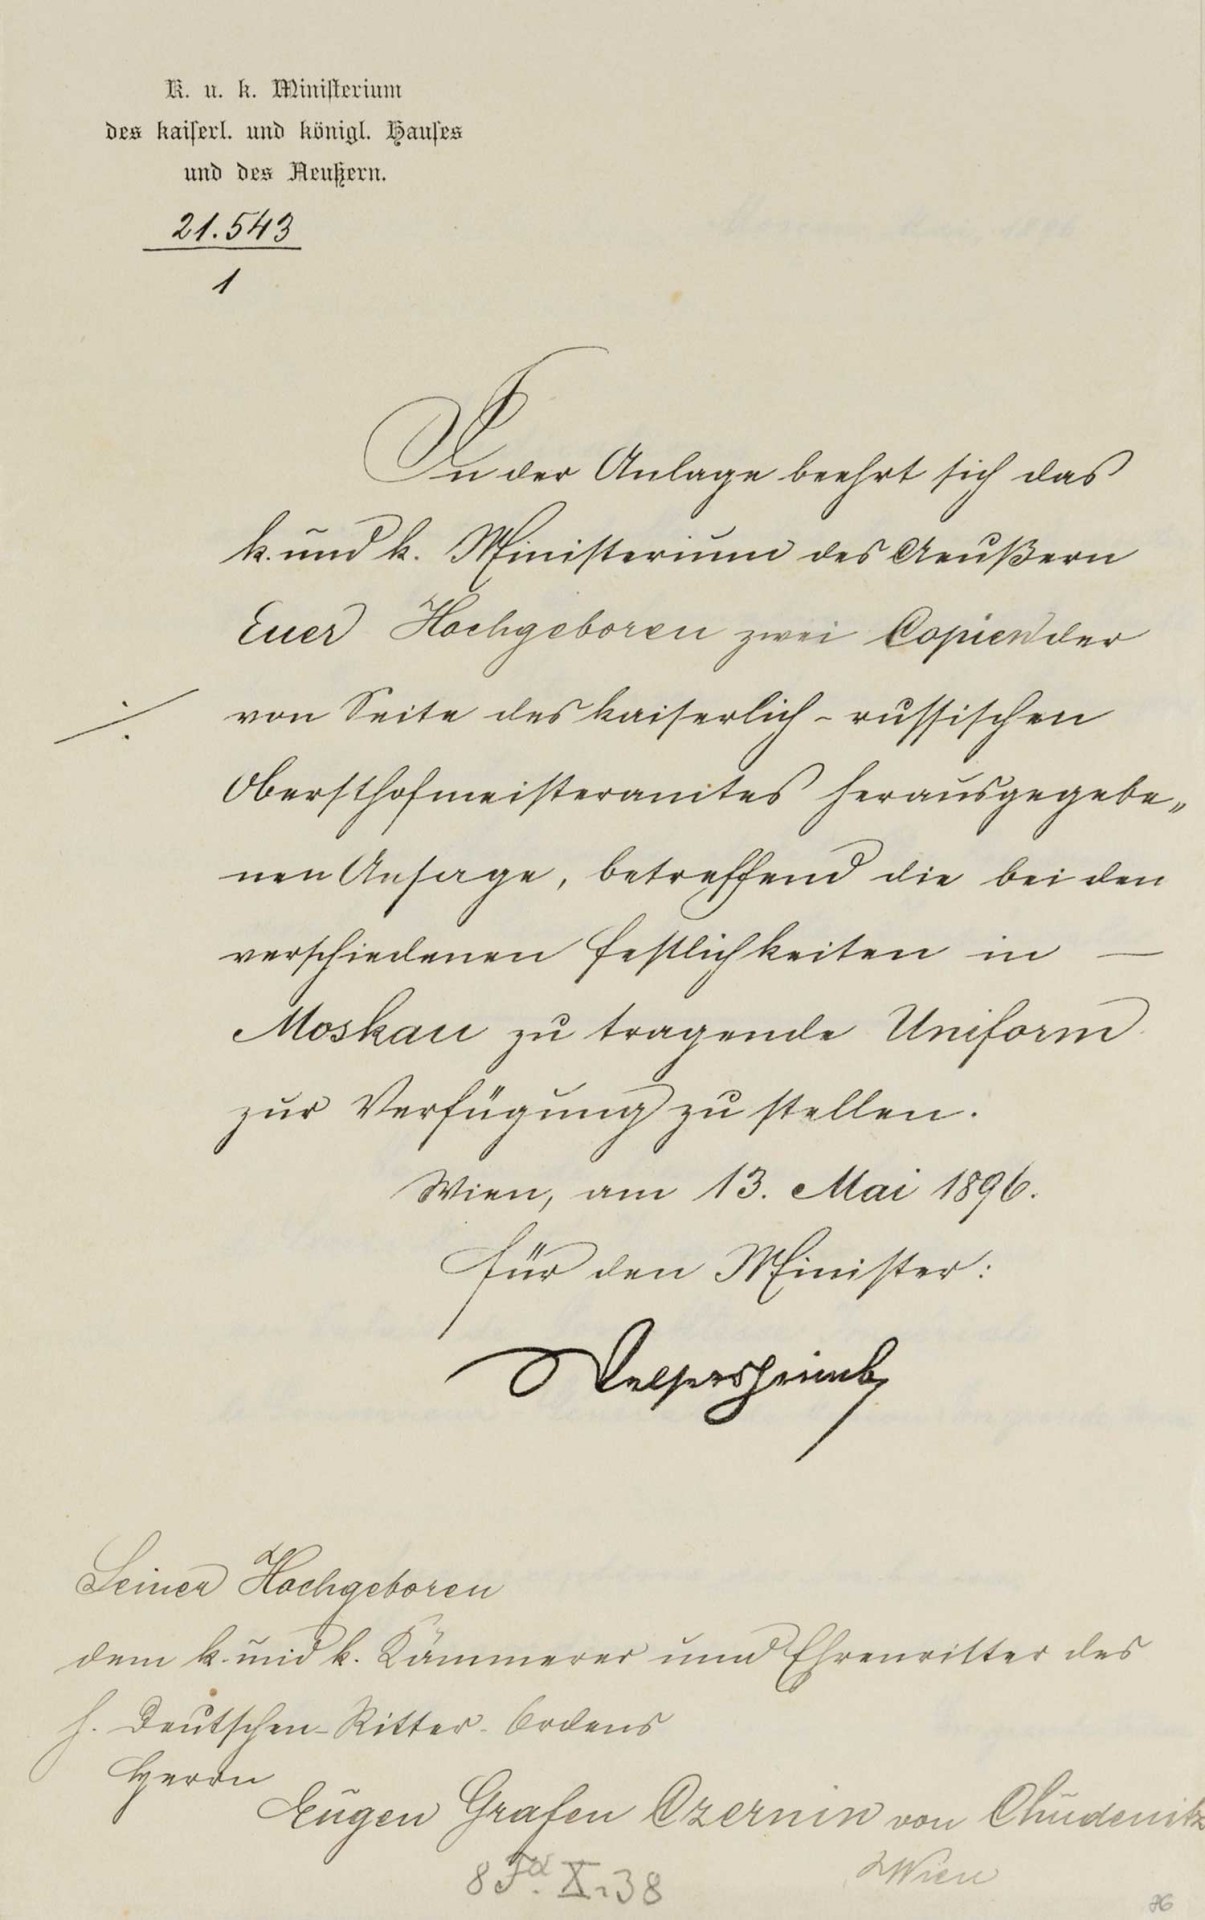 K. u. k. Ministerium
des kaiserl. und königl. Hauses
und des Aeußern.
21.543
1
In der Anlage beehrt sich das
k. und k. Ministerium des Aeußern
Euer Hochgeboren zwei Copien der
von Seite des kaiserlich-russischen
Obersthofmeisteramtes herausgegebe„
nen Ansage, betreffend die bei den
verschiedenen Festlichkeiten in —
Moskau zu tragende Uniform
zur Verfügung zu stellen.
Wien, am 13. Mai 1896.
Für den Minister:
Welsersheimb
Seiner Hochgeboren
dem k. und k. Kämmerer und Ehrenritter des
h. Deutschen-Ritter-Ordens
Herrn
Eugen Grafen Czernin von Chudenitz
Wien
X. 38
76